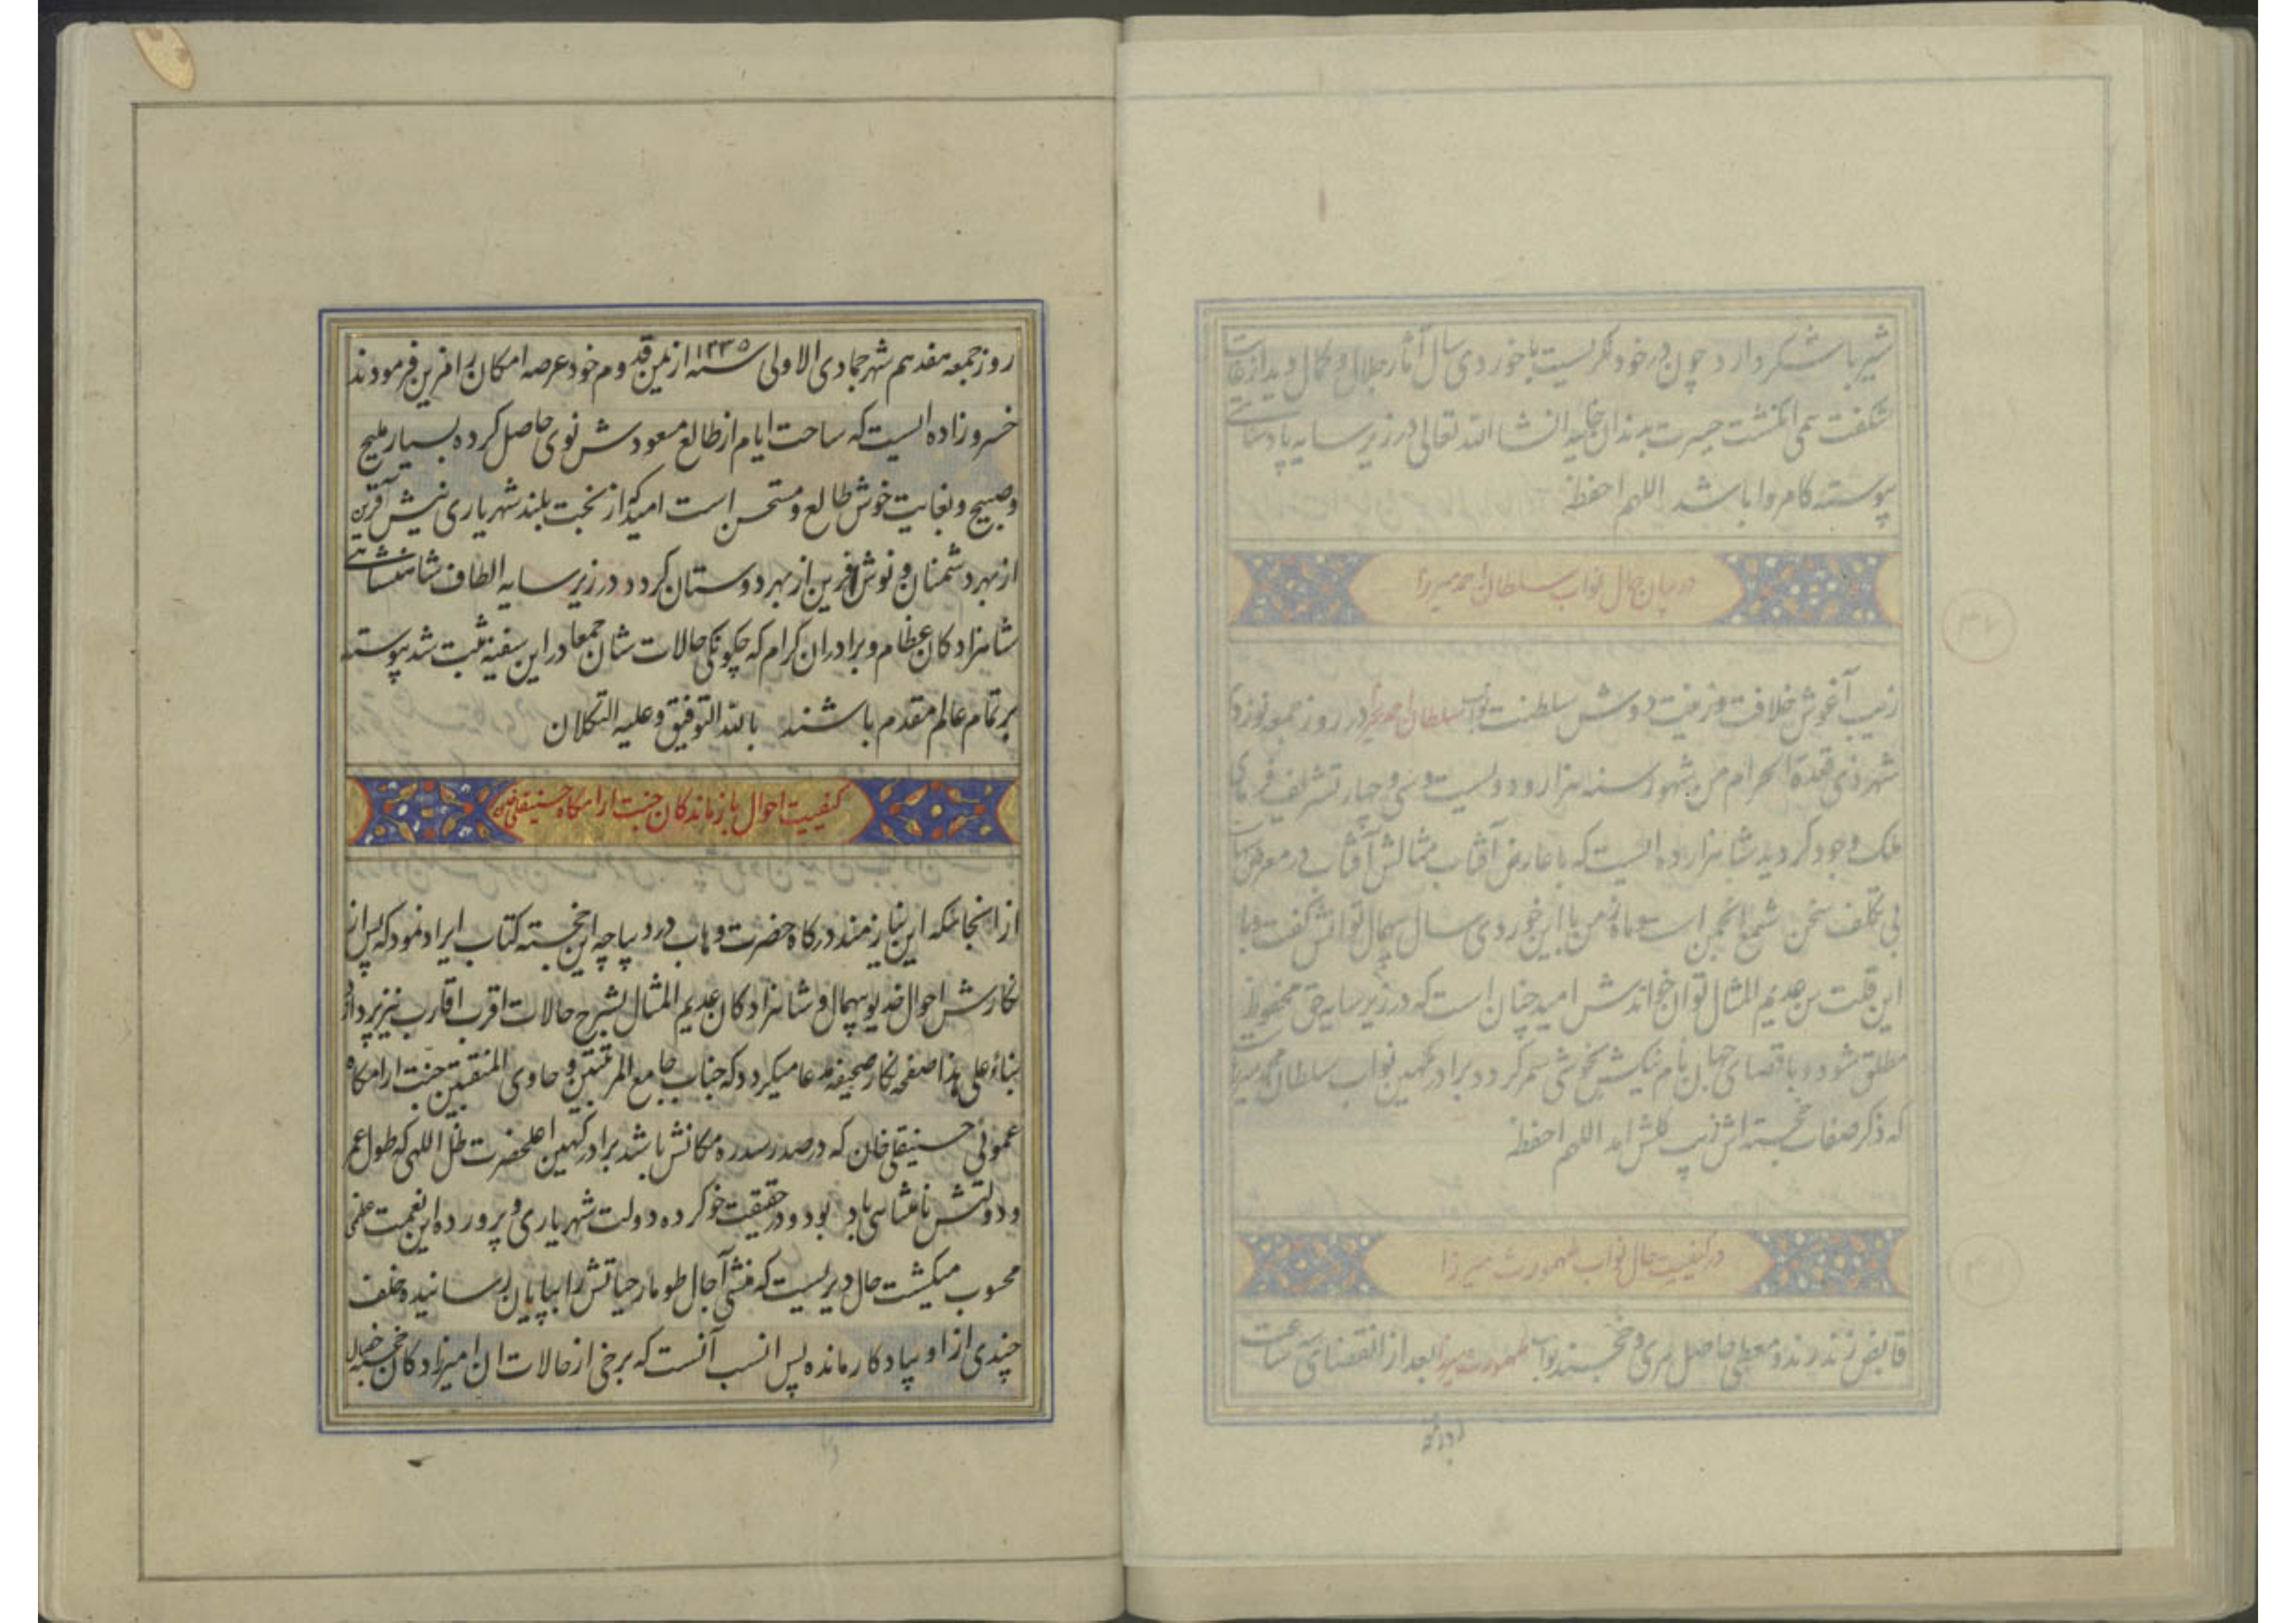 شیر باشکر دارد چون در خود نگریست با خوردی سال آثار جلال و کمال دید از غایت
شکفت همی انگشت حیرت بدندان خایید انشاالله تعالی در زیر سایه پادشاهی
پیوسته کامروا باشد اللهم احفظه
در بیان حال نواب سلطان احمد میرزا
زیب آغوش خلافت و زینت دوش سلطنت نواب سلطان احمد میرزا در روز جمعه نوزدهم
شهر ذی قعدة الحرام من شهور سنه هزار و دویست و سی و چهار تشریف فرمای
ملک وجود گردید شاهزاده ایست که با عارض آفتاب مثالش آفتاب در معرض
بی تکلف سخن شمع انجمن است و ماه زمن با این خوردی سال بیهمال توانش گفت و با
این قلت سن عدیم المثال توان خواندش امید چنان است که در زیر سایه حق محفوظ
مطلق شود و باقصای جهان نام نیکش بخوشی سمر کردد برادر کهین نواب سلطان محمد میرزا
که ذکر صفات خجسته اش زیب کلش امد اللهم احفظه
در کیفیت حال نواب طهمورث میرزا
قابض زند رند و معطی حاصل مری و خجسند نواب طهمورث میرزا بعد از انقضای سه ساعت
روز جمعه هفدهم شهر جمادی الاولی سنه ۱۲۳۵ از یمن قدوم خود عرصه امکان را مزین فرمودند
خسروزاده ایست که ساحت ایام از طالع مسعودش نوی حاصل کرده بسیار ملیح
و صبیح و بغایت خوش طالع و مستحسن است امید که از بخت بلند شهریاری نیش آفرین
از بهر دشمنان و نوش آفرین از بهر دوستان کردد و در زیر سایه الطاف شاهنشاهی
شاهزادکان عظام و برادران کرام که چکونکی حالات شان جمعا در این سفینه ثبت شد پیوسته
بر تمام عالم مقدم باشند بالله التوفیق و علیه التکلان
کیفییت احوال بازماندکان جنت ارامکاه حسینقلی خان
از انجائیکه این نیازمند درکاه حضرت وهاب در دیباچه این خجسته کتاب ایراد نمود که پس از
نکارش احوال خدیو بیهمال و شاهزادکان عدیم المثال بشرح حالات اقرب اقارب نیز پردازد
بناء علی هذا صفحه نکار صحیفه مدعا میکردد که جناب جامع المرتبتین و حاوی المنقبتین جنت ارامکاه
عموئی حسینقلی خان که در صدر سدره مکانش باشد برادر کهین اعلیحضرت ظل اللهی که طول عمر
و دولتش نامتناهی باد بود و در حقیقت خو کرده دولت شهریاری و پرورده این نعمت عظمی
محسوب میکشت حال دیریست که منشی آجال طومار حیاتش را بپایان رسانیده خلف
چندی از او بیادکار مانده پس انسب آنست که برخی از حالات ان امیرزادکان خجسته خصال